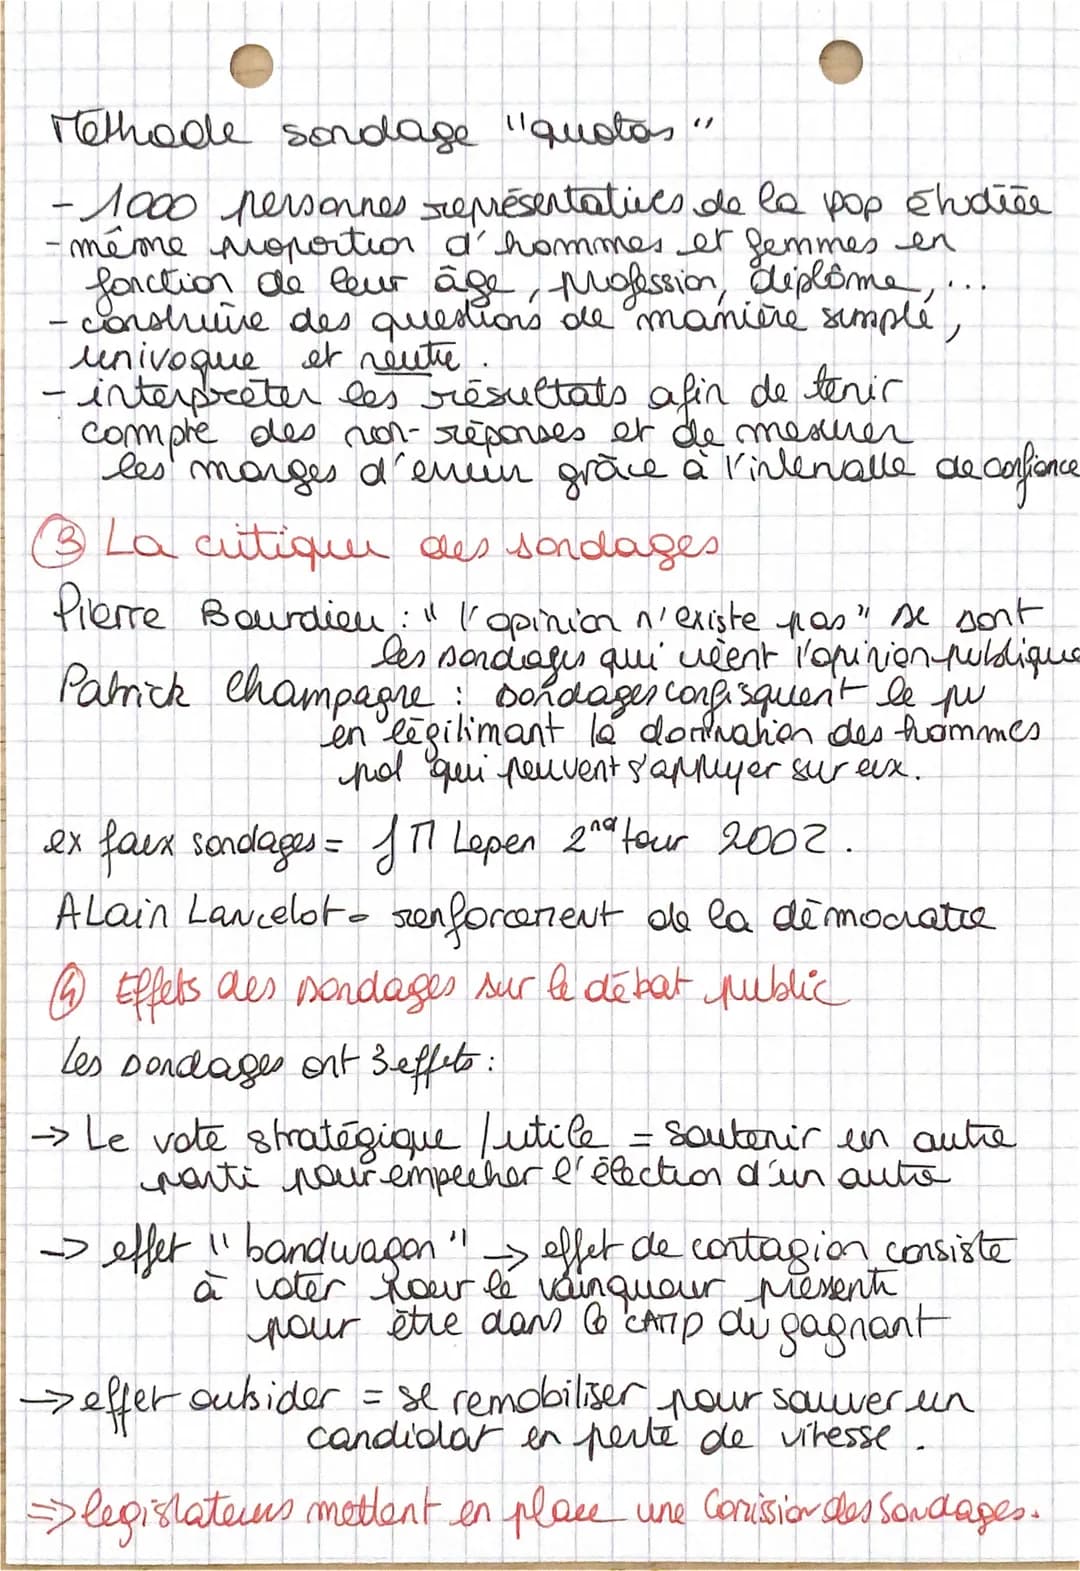 Méthode sondage "quotas"
- 1000 personnes représentatives de la pop étudiée
- même proportion d'hommes et femmes en
fonction de leur âge, profession, diplôme, ...
- construire des questions de manière simple,
univoque et neutre.
- interpréter les résultats afin de tenir
compte des non-réponses et de mesurer
les marges d'erreur grâce à l'intervalle de confiance
③ La critique des sondages
Pierre Bourdieu : "l'opinion n'existe pas" se sont
les sondages qui créent l'opinion publique
Patrick Champagne : sondages confisquent le pv
en légitimant la domination des hommes
pol qui peuvent s'appuyer sur eux.
ex faux sondages = JM Lepen 2nd tour 2002.
Alain Lancelot = renforcement de la démocratie
④ Effets des sondages sur le débat public
Les sondages ont 3 effets :
→ Le vote stratégique / utile = soutenir un autre
parti pour empecher l'élection d'un autre
→ effet "bandwagon" → effet de contagion consiste
à voter pour le vainqueur pressenti
pour être dans le camp du gagnant
→ effet outsider = se remobiliser pour sauver un
candidat en perte de vitesse.
=> legislateurs mettent en place une Comission des Sondages.